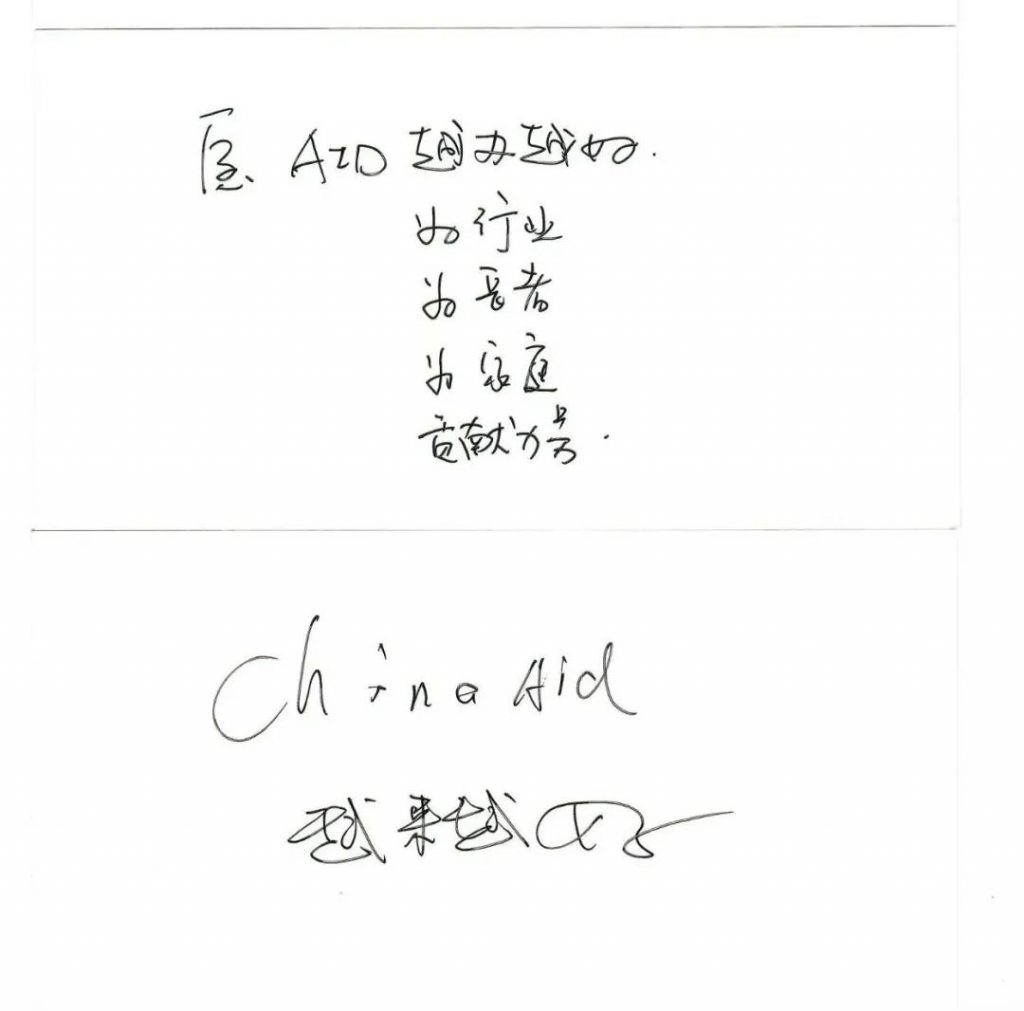 愿 AID 越办越好.
为行业
为長者
为家庭
贡献力量.
China Aid
越来越好